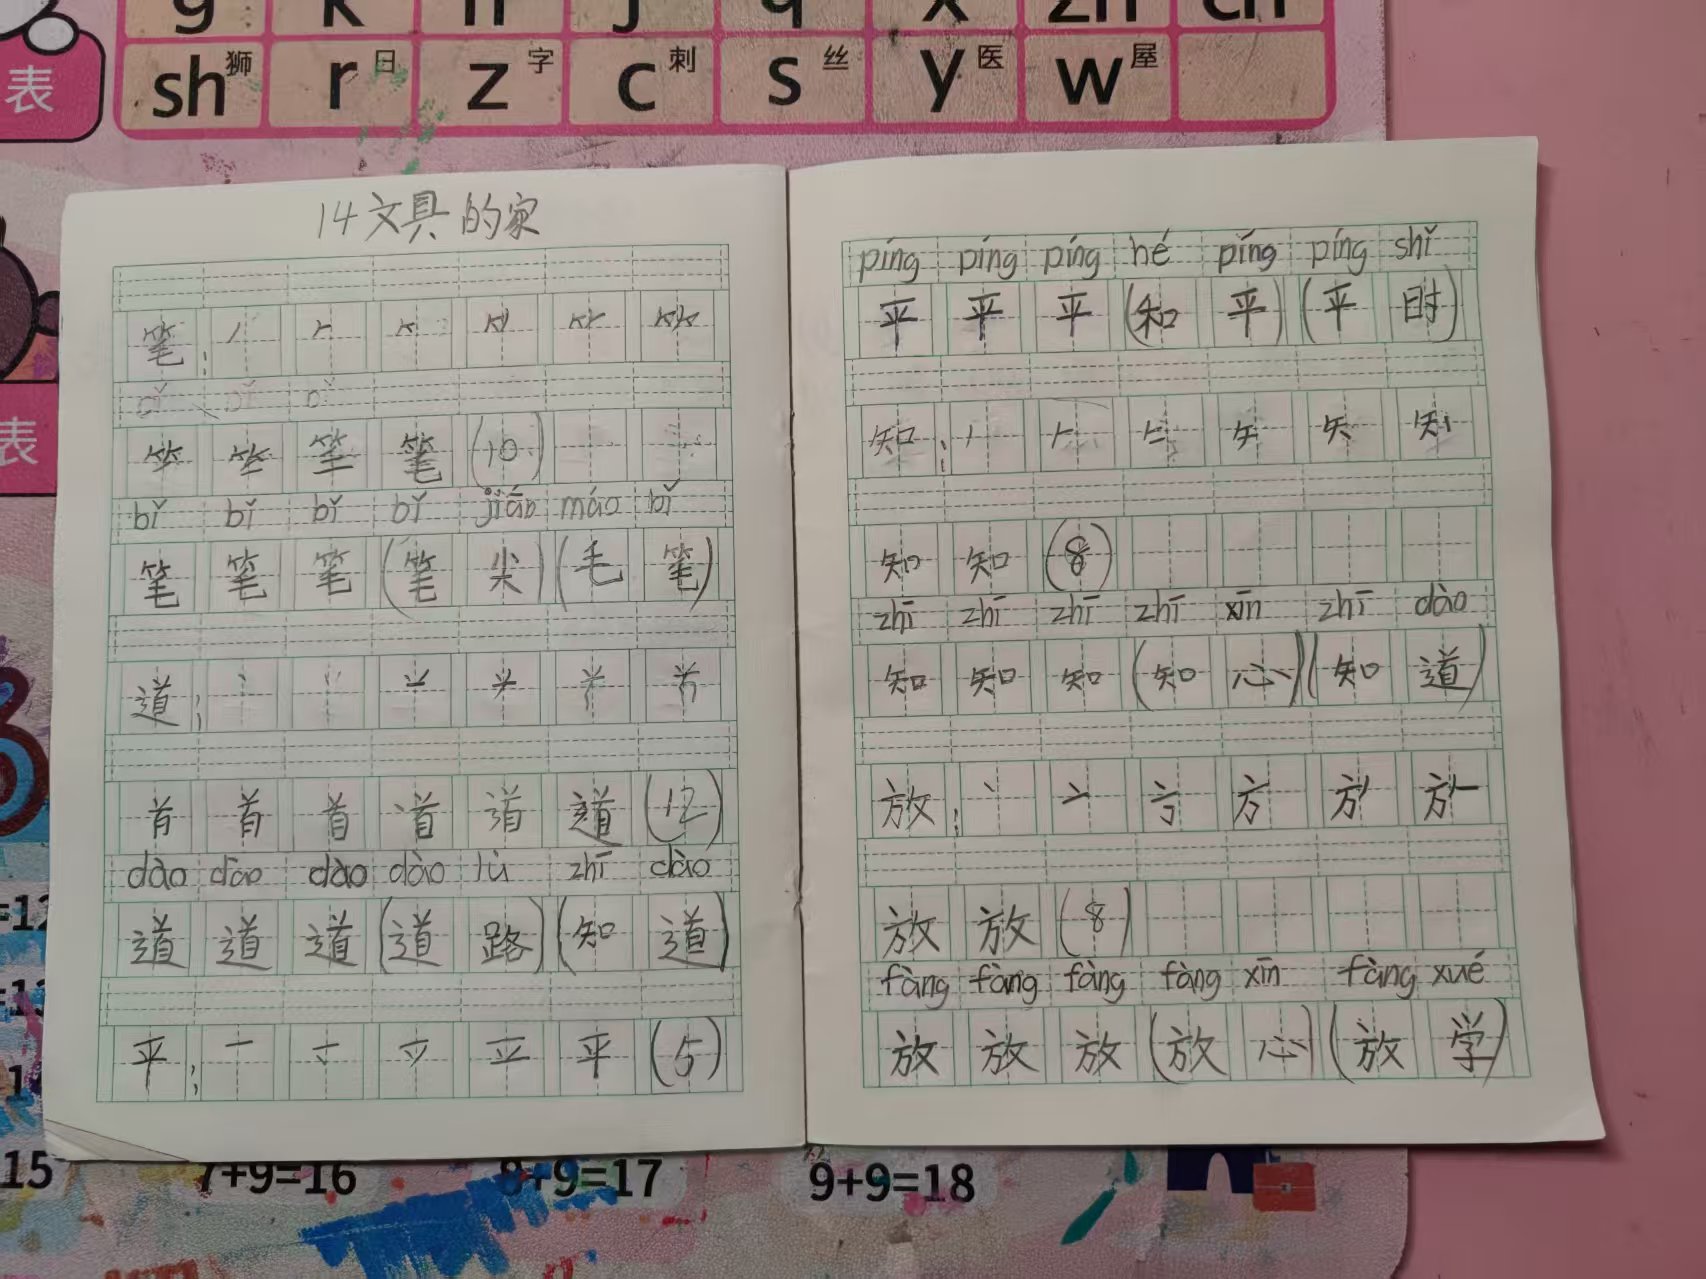 sh 狮 r 日 z 字 c 刺 s 丝 y 医 w 屋
表
表
14 文具的家
笔：
笔 (10)
bǐ bǐ bǐ bǐ jiān máo bǐ
笔 笔 笔 (笔 尖) (毛 笔)
道：
首 道 (12)
dào dào dào dào lù zhī dào
道 道 道 (道 路) (知 道)
平： 一 平 (5)
píng píng píng hé píng píng shí
平 平 平 (和 平) (平 时)
知：
知 知 (8)
zhī zhī zhī zhī xīn zhī dào
知 知 知 (知 心) (知 道)
放： 亠 方
放 放 (8)
fàng fàng fàng fàng xīn fàng xué
放 放 放 (放 心) (放 学)
15 7+9=16 8+9=17 9+9=18